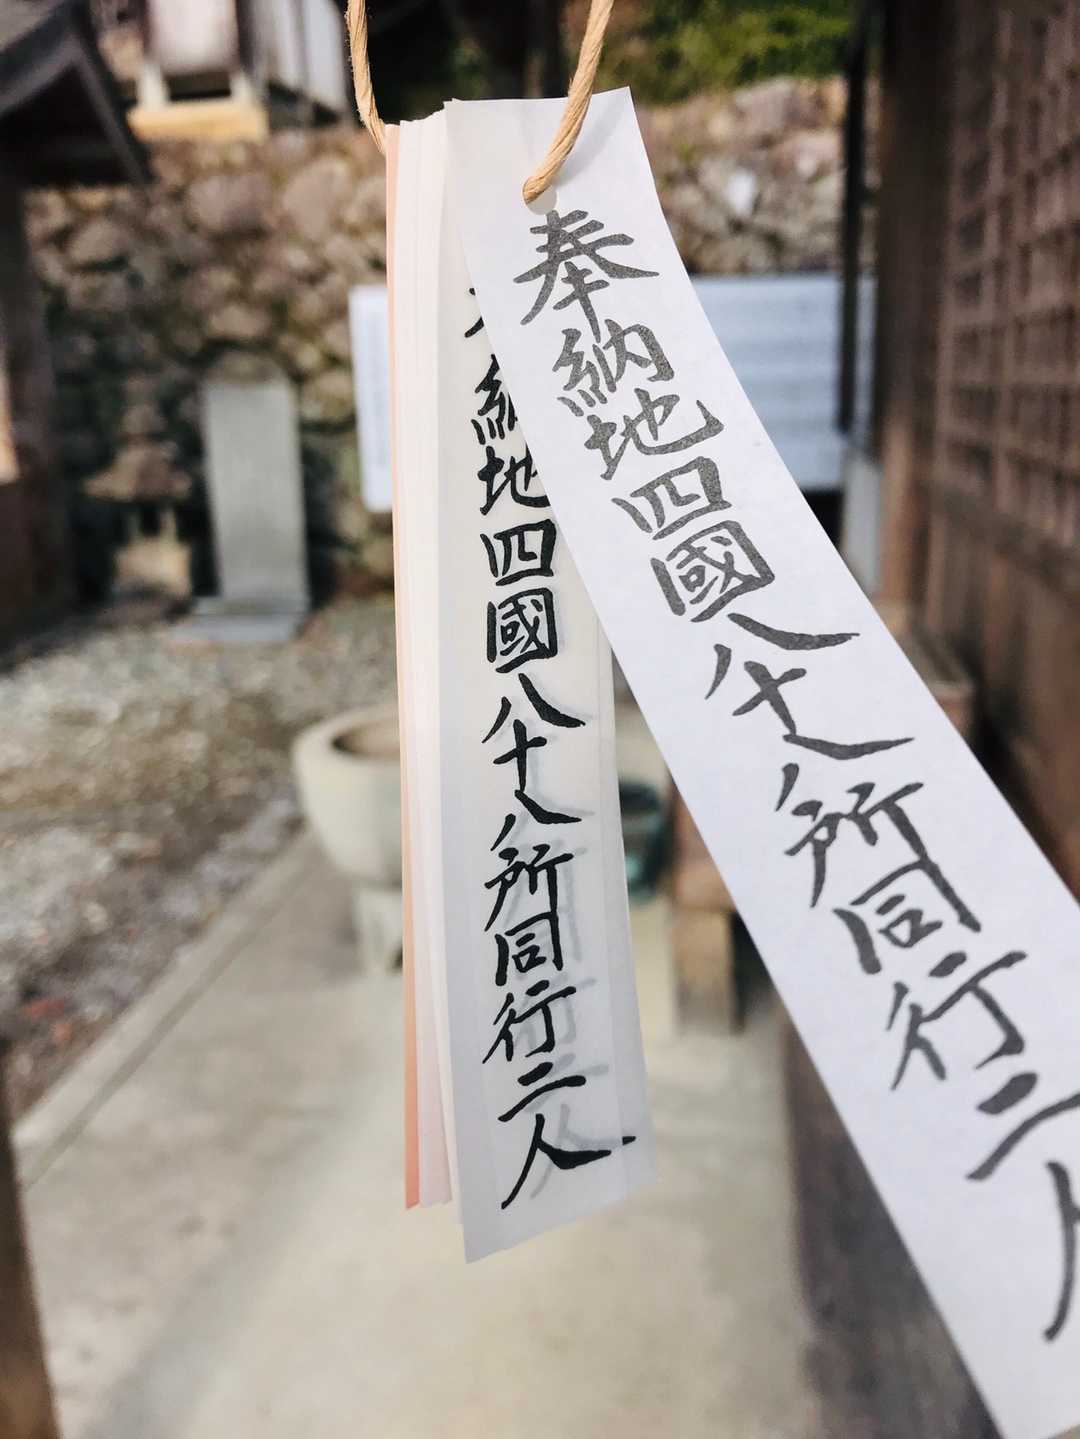 奉納地四國八十八所同行二人
納地四國八十八所同行二人